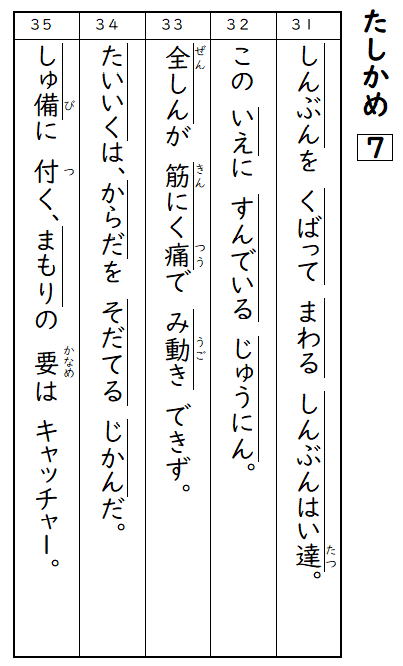 たしかめ 7
31
しんぶんを くばって まわる しんぶんはい達。
たつ
32
この いえに すんでいる じゅうにん。
33
全しんが 筋にく痛で み動き できず。
ぜん きん つう うご
34
たいいくは、からだを そだてる じかんだ。
35
しゅ備に 付く、まもりの 要は キャッチャー。
び つ かなめ